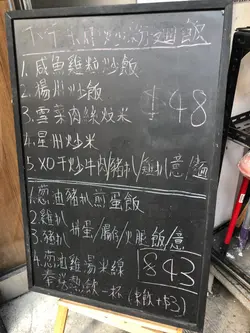 1. 咸魚雞粒炒飯
2. 揚州炒飯
3. 雪菜肉絲炆米
$48
4. 星州炒米
5. XO干炒牛肉/豬扒/雞扒 意/麵
1. 蔥油豬扒煎蛋飯
2. 雞扒
3. 豬扒
拼蛋/腸/火腿 飯/意
4. 蔥油雞湯米線
$43
奉送熱飲一杯 (凍飲+$3)